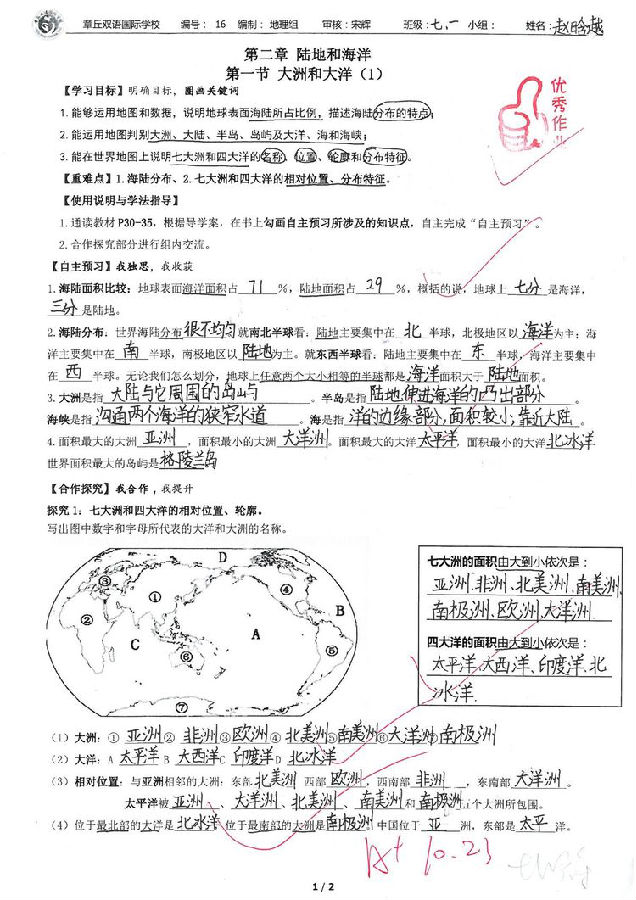 章丘双语国际学校 编号： 16 编制： 地理组 审核：宋辉 班级：七.一 小组： 姓名：赵晗越
第二章 陆地和海洋
第一节 大洲和大洋（1）
优秀作业
【学习目标】明确目标，圈画关键词
1.能够运用地图和数据，说明地球表面海陆所占比例，描述海陆分布的特点；
2.能运用地图判别大洲、大陆、半岛、岛屿及大洋、海和海峡；
3.能在世界地图上说明七大洲和四大洋的名称、位置、轮廓和分布特征。
【重难点】1.海陆分布、2.七大洲和四大洋的相对位置、分布特征。
【使用说明与学法指导】
1.通读教材 P30-35，根据导学案，在书上勾画自主预习所涉及的知识点，自主完成“自主预习”。
2.合作探究部分进行组内交流。
【自主预习】我独思，我收获
1.海陆面积比较：地球表面海洋面积占 71 %，陆地面积占 29 %，概括的说，地球上 七分 是海洋，
三分 是陆地。
2.海陆分布：世界海陆分布 很不均匀 就南北半球看：陆地主要集中在 北 半球，北极地区以 海洋 为主；海
洋主要集中在 南 半球，南极地区以 陆地 为主。就东西半球看：陆地主要集中在 东 半球，海洋主要集中
在 西 半球。无论我们怎么划分，地球上任意两个大小相等的半球都是 海洋 面积大于 陆地 面积。
3.大洲是指 大陆与它周围的岛屿 。半岛是指 陆地伸进海洋的凸出部分 。
海峡是指 沟通两个海洋的狭窄水道 。海是指 洋的边缘部分，面积较小，靠近大陆 。
4.面积最大的大洲 亚洲 ，面积最小的大洲 大洋洲 。面积最大的大洋 太平洋 ，面积最小的大洋 北冰洋
世界面积最大的岛屿是 格陵兰岛
【合作探究】我合作，我提升
探究 1：七大洲和四大洋的相对位置、轮廓。
写出图中数字和字母所代表的大洋和大洲的名称。
D
③ ① ④
② B
C A
⑥ ⑤
⑦
七大洲的面积由大到小依次是：
亚洲、非洲、北美洲、南美洲、
南极洲、欧洲、大洋洲
四大洋的面积由大到小依次是：
太平洋、大西洋、印度洋、北
冰洋
（1）大洲：① 亚洲 ② 非洲 ③ 欧洲 ④ 北美洲 ⑤ 南美洲 ⑥ 大洋洲 ⑦ 南极洲
（2）大洋：A 太平洋 B 大西洋 C 印度洋 D 北冰洋
（3）相对位置：与亚洲相邻的大洲：东部 北美洲 西部 欧洲 ，西南部 非洲 ，东南部 大洋洲 。
太平洋被 亚洲 、 大洋洲 、 北美洲 、 南美洲 和 南极洲 五个大洲所包围。
（4）位于最北部的大洋是 北冰洋 位于最南部的大洲是 南极洲 中国位于 亚 洲，东部是 太平 洋。
A+ 10.23
1 / 2